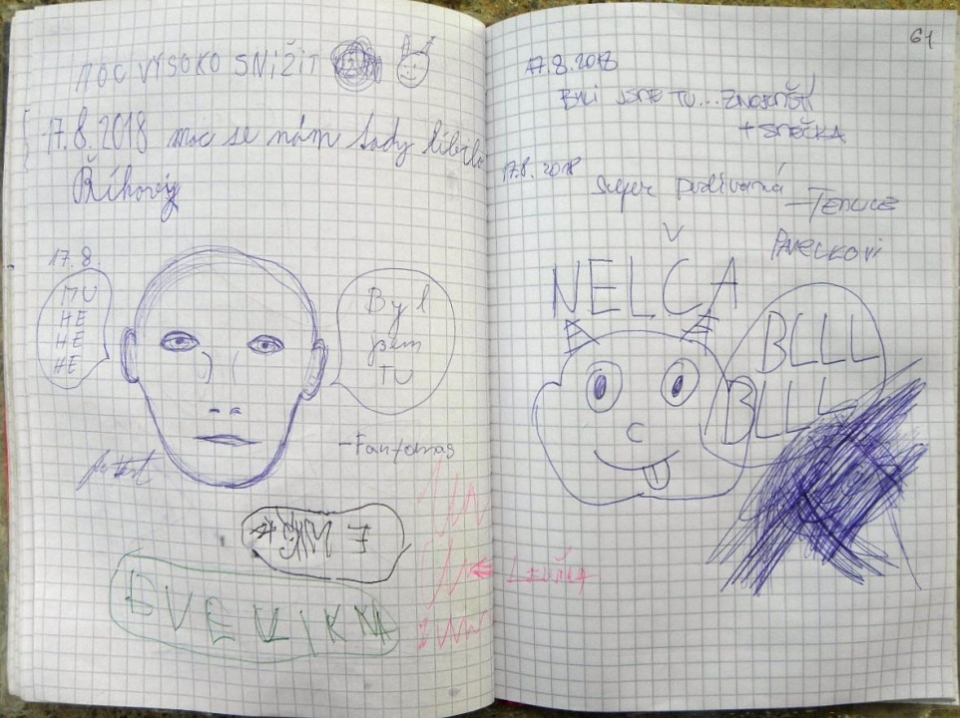 MOC VYSOKO SNÍŽIT
17.8.2018 moc se nám tady líbilo
Říhovi
17.8.
MU
HE
HE
HE
Byl
jsem
TU
-Fantomas
EVELIKNA
61
17.8.2018
BYLI JSME TU...ZNOJMŠTÍ
+ SNEČKA
17.8.2018
super podívaná
-TEMICE
PAVELKOVI
V
NELCA
BLLL
BLLL
LEUŠKA